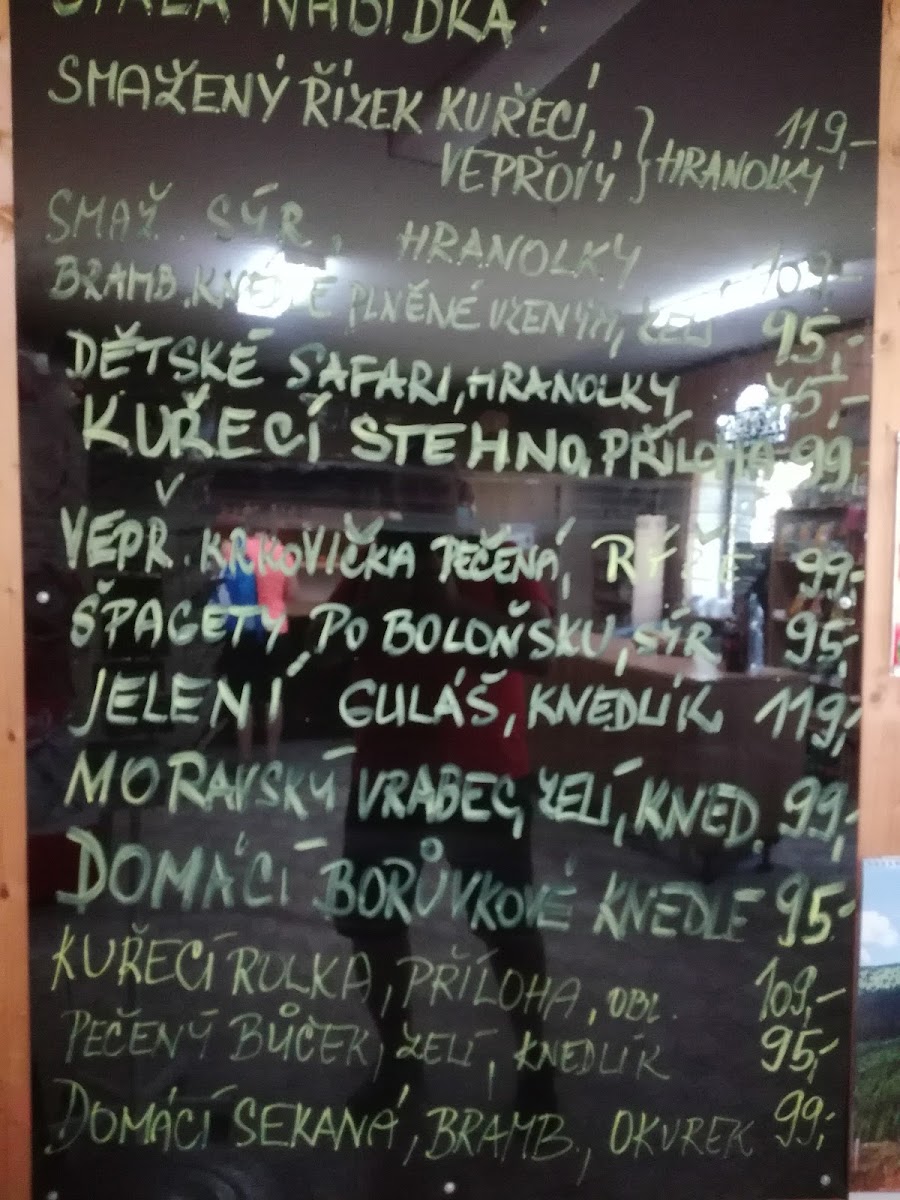 STÁLÁ NABÍDKA:
SMAŽENÝ ŘÍZEK KUŘECÍ, 119,-
VEPŘOVÝ } HRANOLKY
SMAŽ. SÝR, HRANOLKY 109,-
BRAMB. KNEDLE PLNĚNÉ UZENÝM, ZELÍ 95,-
DĚTSKÉ SAFARI, HRANOLKY 75,-
KUŘECÍ STEHNO, PŘÍLOHA 99,-
VEPŘ. KRKOVIČKA PEČENÁ, RÝŽE 99,-
ŠPAGETY PO BOLOŇSKU, SÝR 95,-
JELENÍ GULÁŠ, KNEDLÍK 119,-
MORAVSKÝ VRABEC, ZELÍ, KNED. 99,-
DOMÁCÍ BORŮVKOVÉ KNEDLE 95,-
KUŘECÍ ROLKA, PŘÍLOHA, OBL. 109,-
PEČENÝ BŮČEK, ZELÍ, KNEDLÍK 95,-
DOMÁCÍ SEKANÁ, BRAMB., OKUREK 99,-